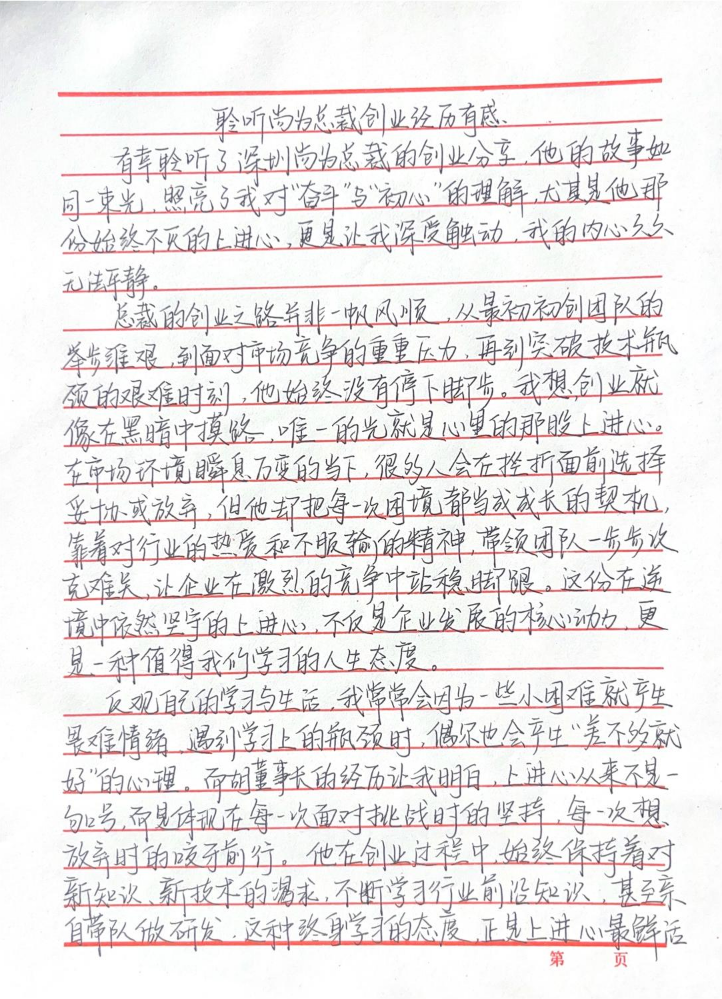 聆听尚为总裁创业经历有感
有幸聆听了深圳尚为总裁的创业分享，他的故事如
同一束光，照亮了我对“奋斗”与“初心”的理解，尤其是他那
份始终不灭的上进心，更是让我深受触动，我的内心久久
无法平静。
总裁的创业之路并非一帆风顺，从最初初创团队的
举步维艰，到面对市场竞争的重重压力，再到突破技术瓶
颈的艰难时刻，他始终没有停下脚步。我想，创业就
像在黑暗中摸路，唯一的光就是心里的那股上进心。
在市场环境瞬息万变的当下，很多人会在挫折面前选择
妥协或放弃，但他却把每一次困境都当成成长的契机，
靠着对行业的热爱和不服输的精神，带领团队一步步攻
克难关，让企业在激烈的竞争中站稳脚跟。这份在逆
境中依然坚守的上进心，不仅是企业发展的核心动力，更
是一种值得我们学习的人生态度。
反观自己的学习与生活，我常常会因为一些小困难就产生
畏难情绪，遇到学习上的瓶颈时，偶尔也会产生“差不多就
好”的心理。而胡董事长的经历让我明白，上进心从来不是一
句口号，而是体现在每一次面对挑战时的坚持，每一次想
放弃时的咬牙前行。他在创业过程中，始终保持着对
新知识、新技术的渴求，不断学习行业前沿知识，甚至亲
自带队做研发，这种终身学习的态度，正是上进心最鲜活
第 页